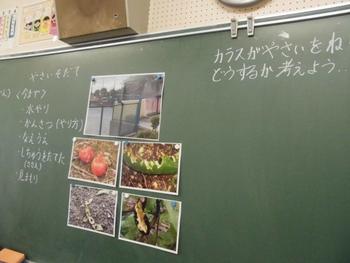 やさいそだて
<今まで>
・水やり
・かんさつ(やり方)
・なえうえ
・しちゅうをたてた
・見まもり
カラスがやさいをね
どうするか考えよう…